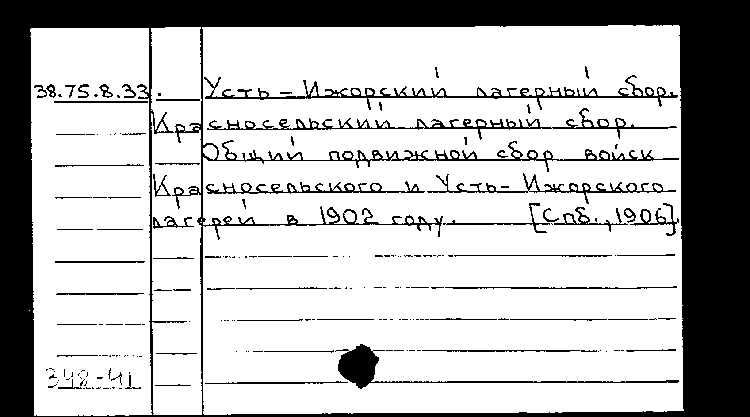 38.75.8.33. Усть-Ижорский лагерный сбор.
Красносельский лагерный сбор.
Общий подвижной сбор войск
Красносельского и Усть-Ижорского
лагерей в 1902 году. [Спб., 1906].
348-41